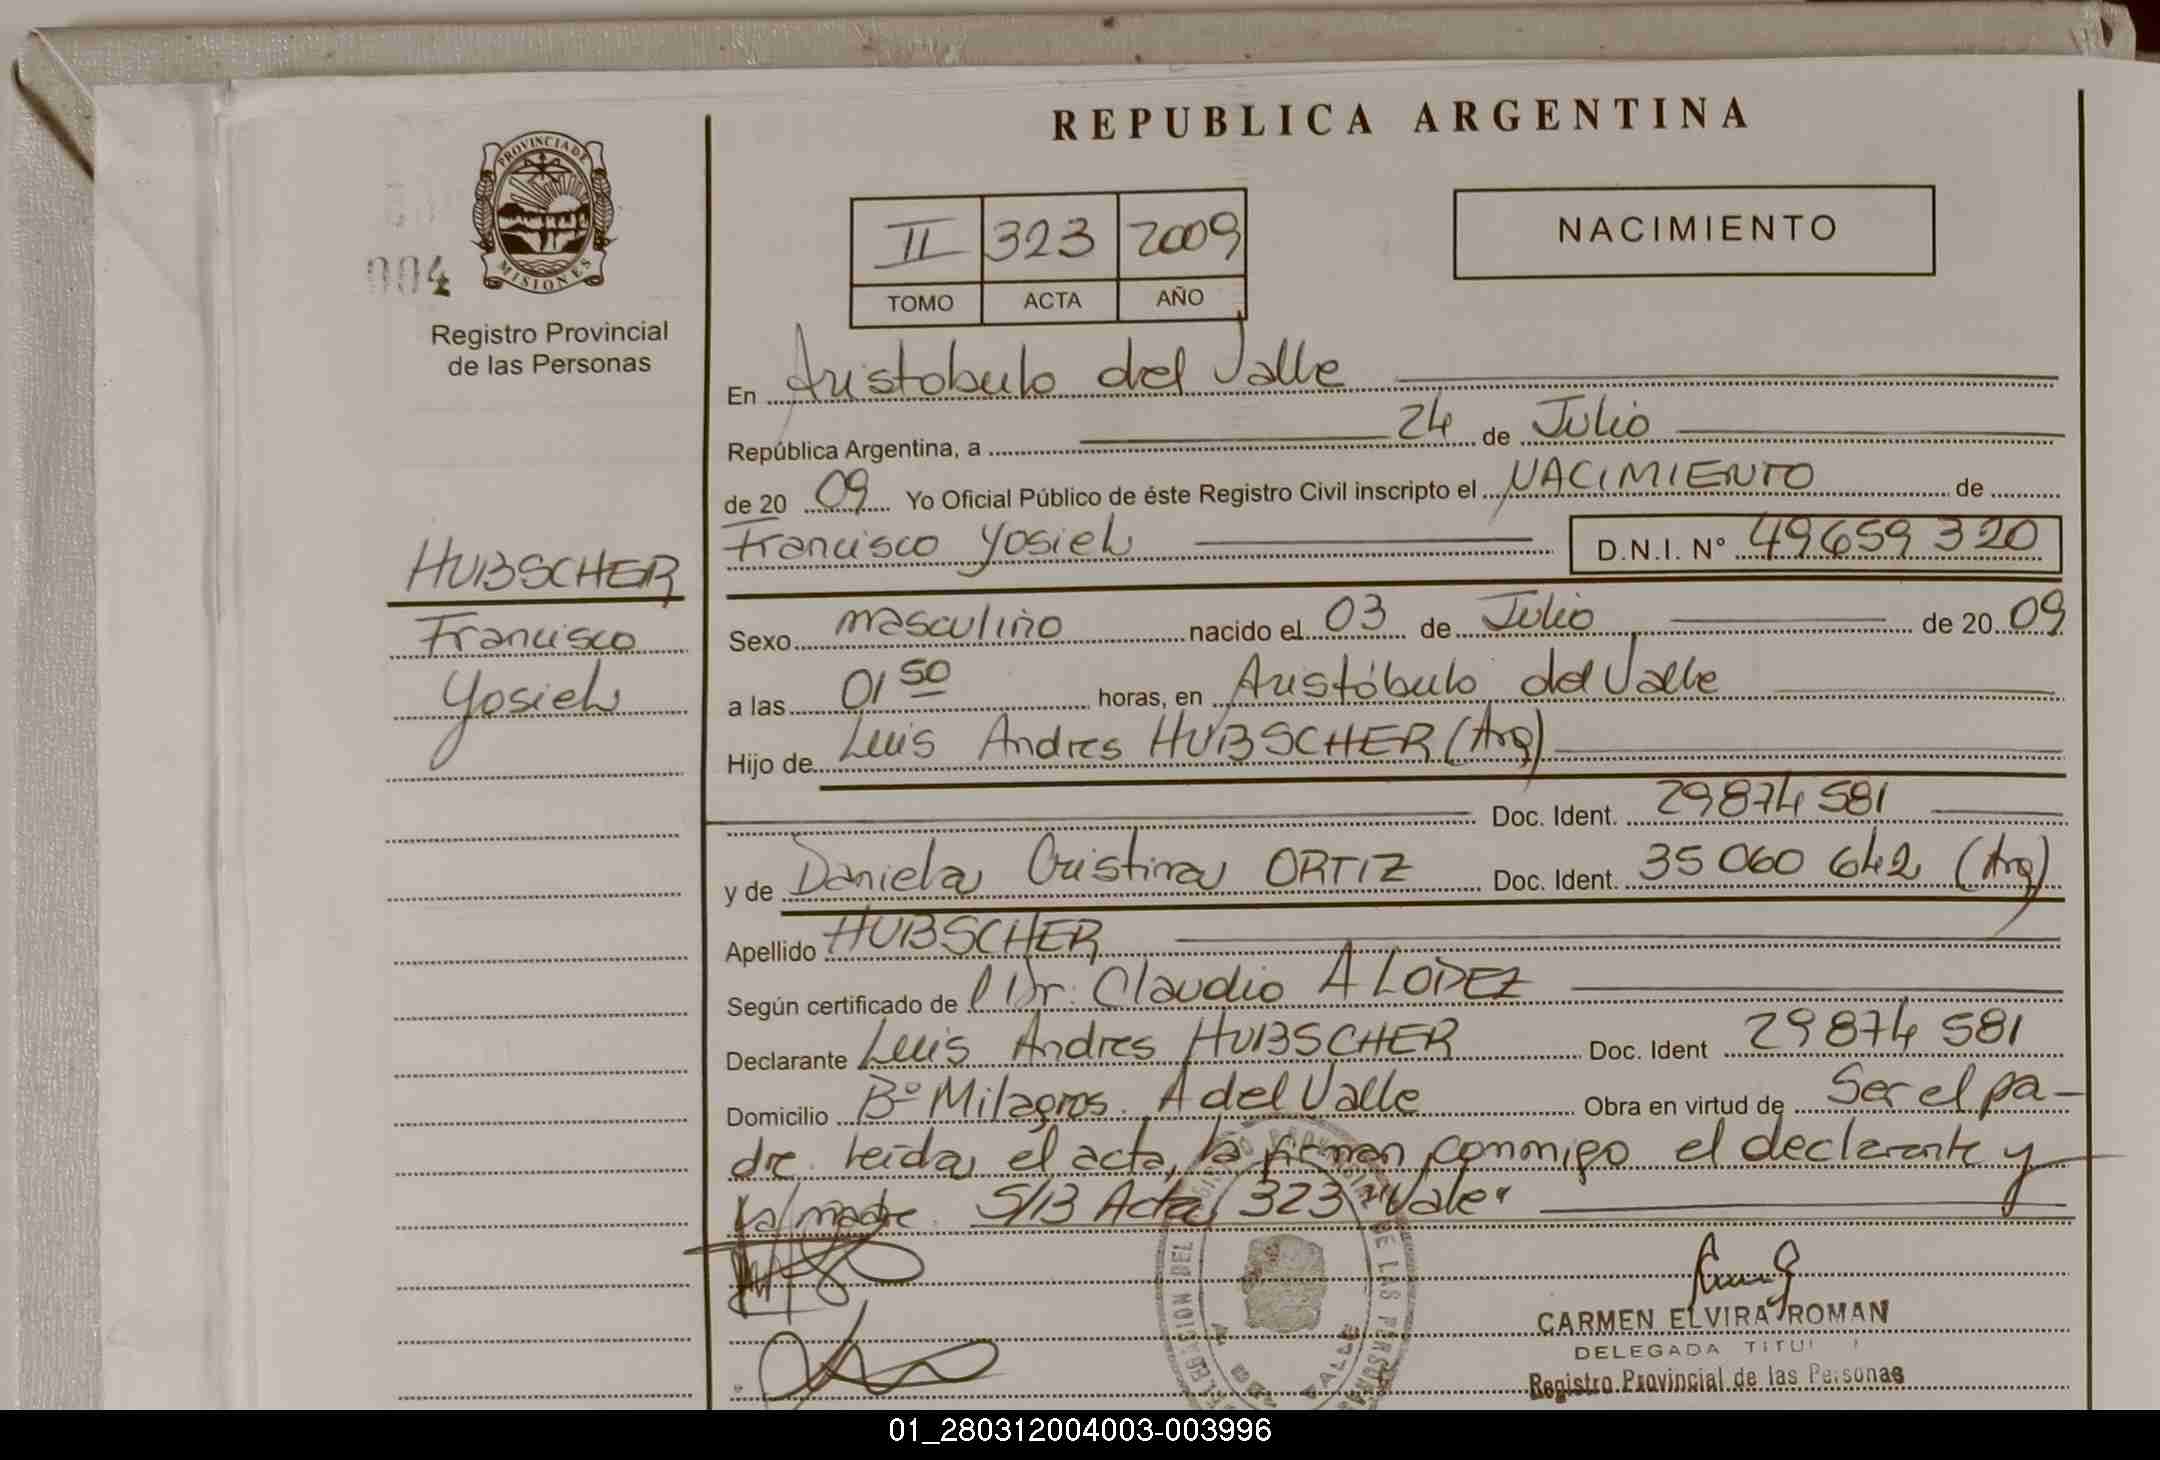 REPUBLICA ARGENTINA
PROVINCIA DE
MISIONES
004
Registro Provincial
de las Personas
II 323 2009
TOMO ACTA AÑO
NACIMIENTO
En Aristobulo del Valle
República Argentina, a 24 de Julio
de 20 09 Yo Oficial Público de éste Registro Civil inscripto el NACIMIENTO de
Francisco Yosieh D.N.I. N° 49659320
HUBSCHER
Francisco
Yosieh
Sexo masculino nacido el 03 de Julio de 20 09
a las 01 50 horas, en Aristóbulo del Valle
Hijo de Luis Andres HUBSCHER (Arg)
Doc. Ident. 29874581
y de Daniela Cristina ORTIZ Doc. Ident. 35060642 (Arg)
Apellido HUBSCHER
Según certificado de l Dr. Claudio A LOPEZ
Declarante Luis Andres HUBSCHER Doc. Ident 29874581
Domicilio Bº Milagros. A del Valle Obra en virtud de Ser el pa-
dre. leida el acta, la firman conmigo el declarante y
la madre. S/B Acta 323 "Vale"
CARMEN ELVIRA ROMAN
DELEGADA TITU
Registro Provincial de las Personas
DELEGACION DEL REGISTRO PROVINCIAL DE LAS PERSONAS
VALLE
01_280312004003-003996